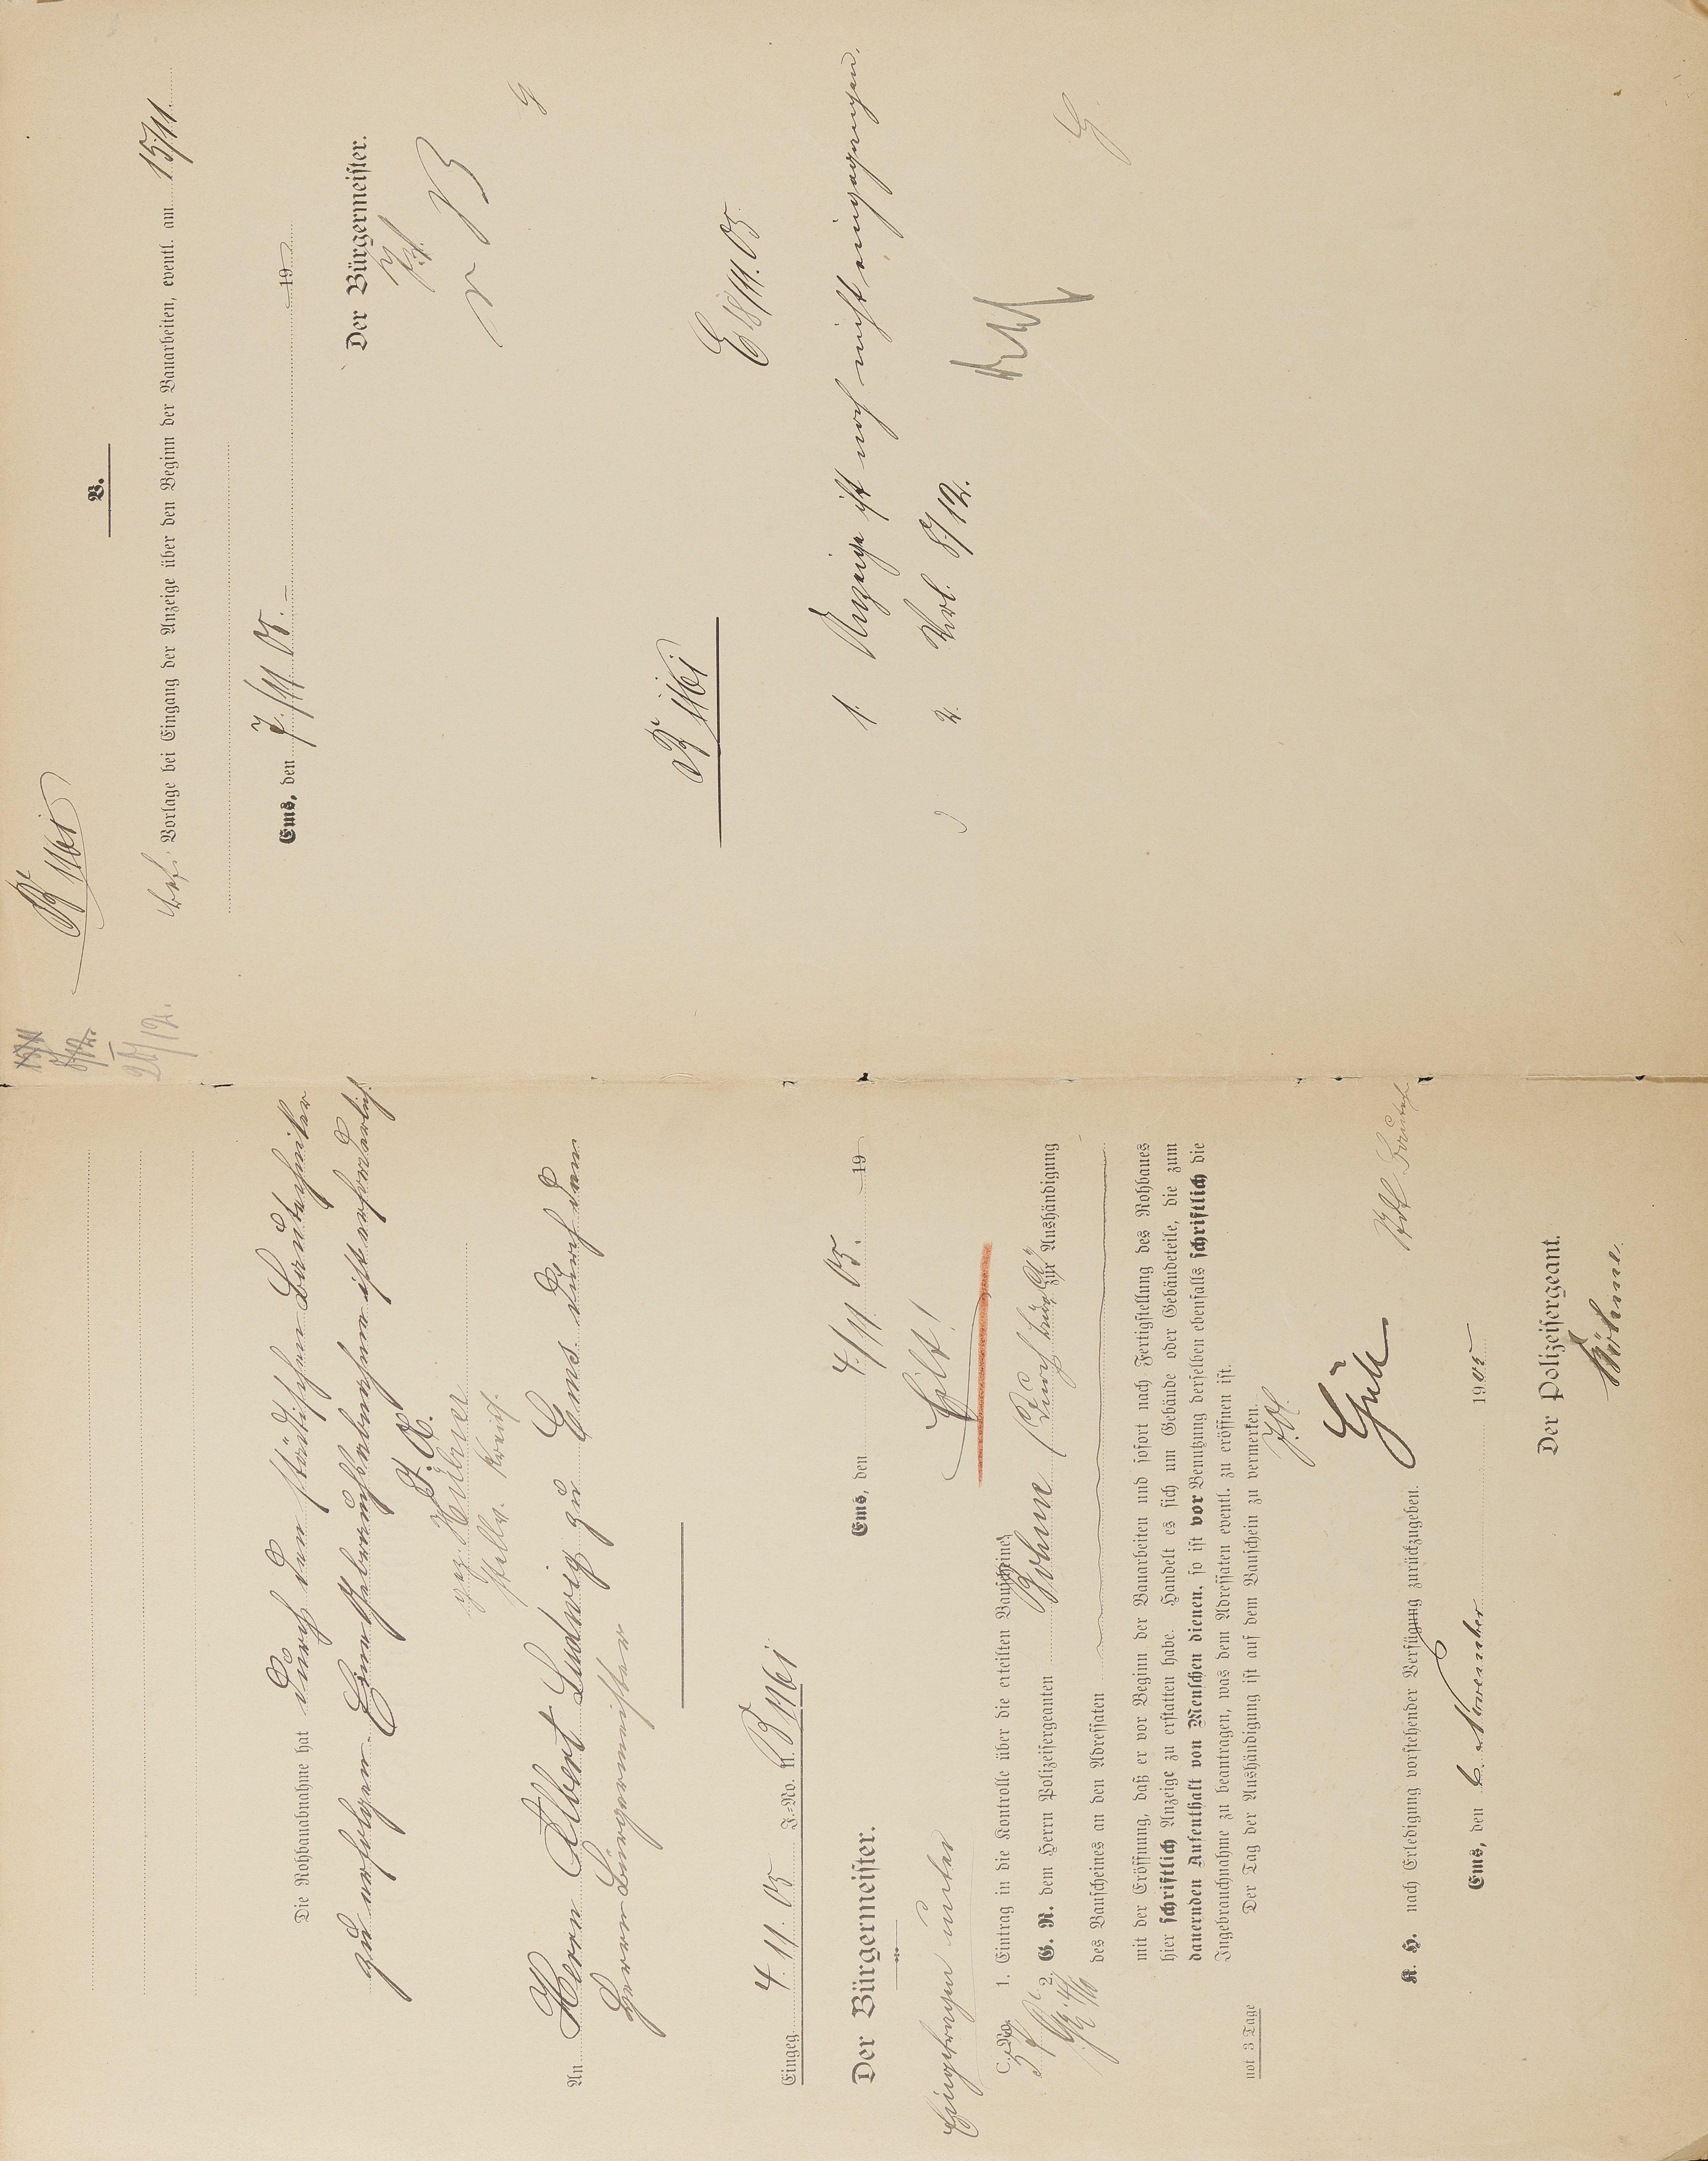 Die Rohbauabnahme hat durch den städtischen Bautechniker
zu erfolgen. Eine Gebrauchsabnahme ist erforderlich.
J. A.
gez. Hübner
stellv. Kreiss.
An Herrn Albert Ludwig zu Ems durch den
Herrn Bürgermeister
Eingeg. 4. 11. 05 J.-No. II. B 1161
Der Bürgermeister.
Ems, den 4/11 05. 19
Eilt!
Eingetragen unter
C.-No.
1. Eintrag in die Kontrolle über die erteilten Bauscheine
2. G. R. dem Herrn Polizeisergeanten Böhme zur Aushändigung
des Bauscheines an den Adressaten
mit der Eröffnung, daß er vor Beginn der Bauarbeiten und sofort nach Fertigstellung des Rohbaues
hier schriftlich Anzeige zu erstatten habe. Handelt es sich um Gebäude oder Gebäudeteile, die zum
dauernden Aufenthalt von Menschen dienen, so ist vor Benutzung derselben ebenfalls schriftlich die
Ingebrauchnahme zu beantragen, was dem Adressaten eventl. zu eröffnen ist.
not 3 Tage
Der Tag der Aushändigung ist auf dem Bauschein zu vermerken.
J. A.
K. H. nach Erledigung vorstehender Verfügung zurückzugeben.
Ems, den 6. November 1905
Der Polizeisergeant.
Böhme
15/11
8/12.
20/12.
B 1161
B.
Vorlage bei Eingang der Anzeige über den Beginn der Bauarbeiten, eventl. am 15/11.
Ems, den 7./11 05. 19
Der Bürgermeister.
B 1161
E 18/11. 05.
1. Anzeige ist noch nicht eingegangen.
2. Vorl. 8/12.